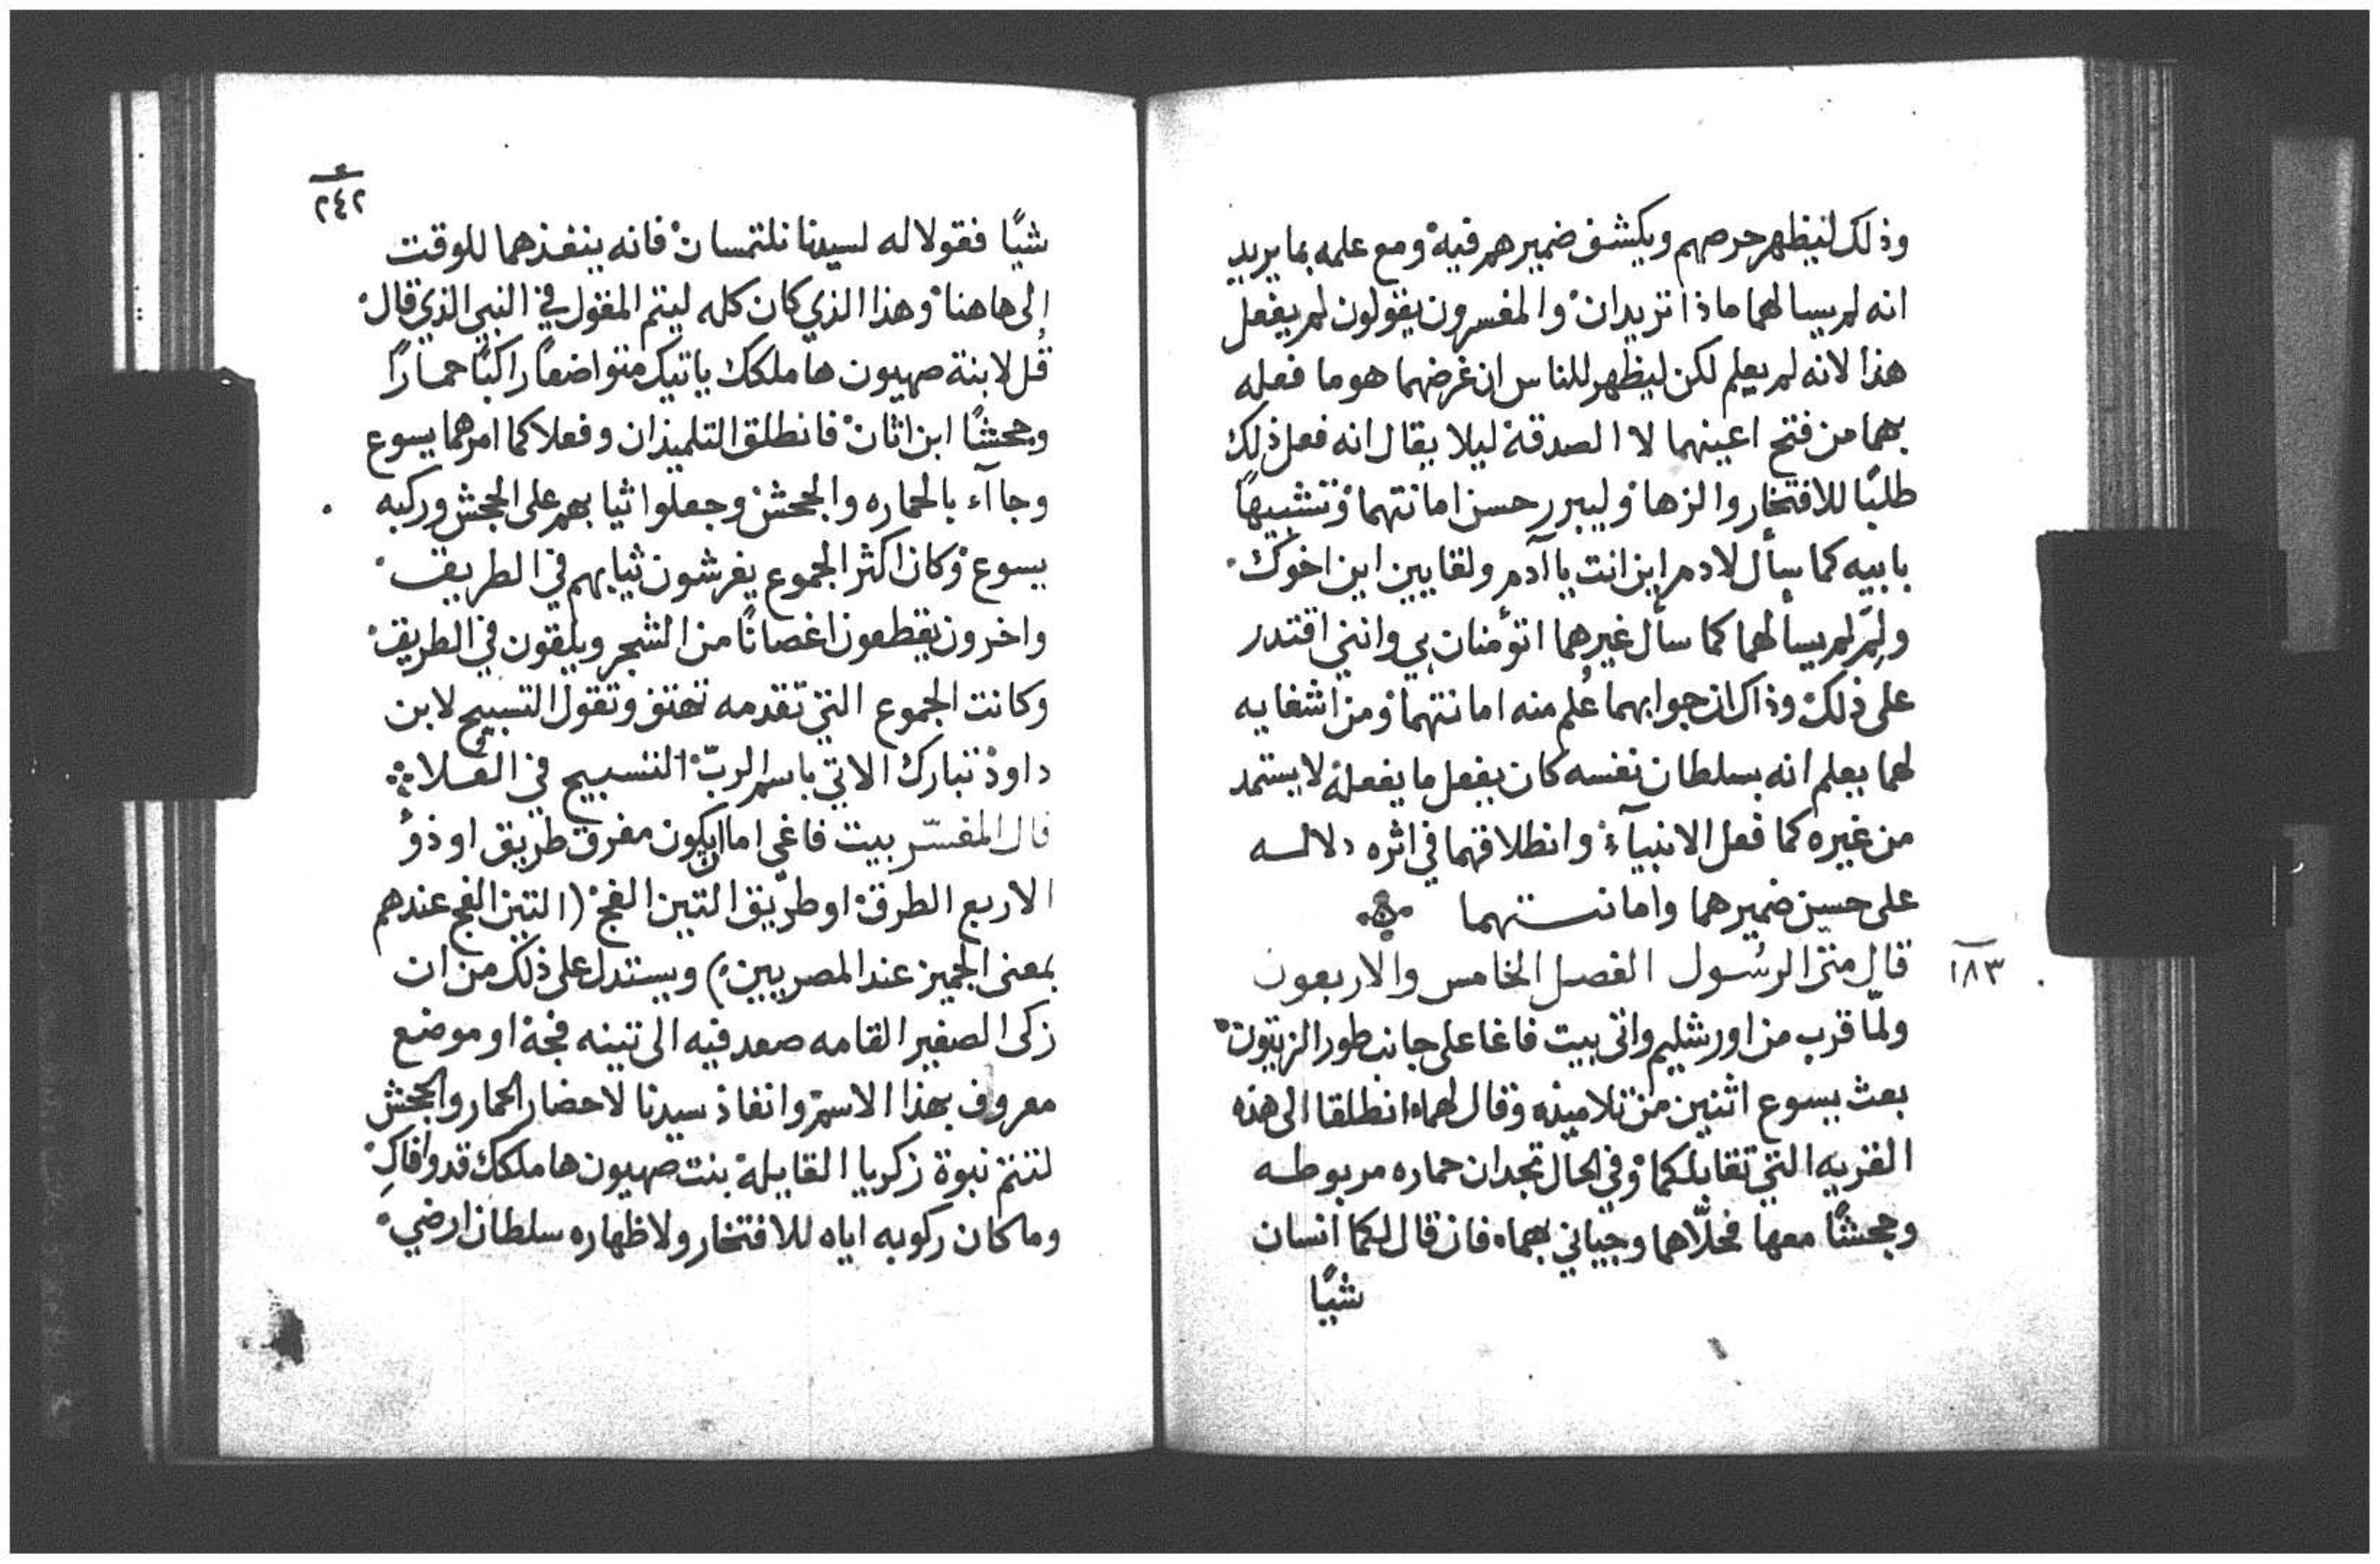 وذلك ليظهر حرصهم ويكشف ضميرهم فيه ومع علمه بما يريد
انه لم يسالهما ماذا تريدان والمفسرون يقولون لم يفعل
هذا لانه لم يعلم لكن ليظهر للناس ان غرضهما هو ما فعله
بهما من فتح اعينهما لا الصدقة ليلا يقال انه فعل ذلك
طلبًا للافتخار والزها وليبرر حسن امانتهما وتشبيهًا
بابيه كما سأل لادم اين انت يا آدم ولقايين اين اخوك
ولِمَ لم يسألهما كما سأل غيرهما اتؤمنان بي وانني اقتدر
على ذلك وذاك ان جوابهما عُلم منه امانتهما ومن اشفايه
لهما يعلم انه بسلطان نفسه كان يفعل ما يفعله لا يستمد
من غيره كما فعل الانبيآء وانطلاقهما في اثره دلالـه
على حسن ضميرهما وامانتهما
١٨٣
قال متى الرسُول الفصل الخامس والاربعون
ولمّا قرب من اورشليم واتى بيت فاغا على جانب طور الزيتون
بعث يسوع اثنين من تلاميذه وقال لهما انطلقا الى هذه
القريه التي تقابلكما وفي الحال تجدان حماره مربوطـه
وجحشًا معها فحلّاهما وجياني بهما فان قال لكما انسان
شيًا
٢٤٢
شيًا فقولا له لسيدنا نلتمسان فانه ينفذهما للوقت
الى هاهنا وهذا الذي كان كله ليتم المقول في النبي الذي قال
قُل لابنة صهيون ها ملكك ياتيك متواضعًا راكبًا حمارًا
وجحشًا ابن اتان فانطلق التلميذان وفعلا كما امرهما يسوع
وجاآء بالحماره والجحش وجعلوا ثيابهم على الجحش وركبه
يسوع وكان اكثر الجموع يفرشون ثيابهم في الطريق
واخرون يقطعون اغصانًا من الشجر ويلقون في الطريق
وكانت الجموع التي تقدمه تهتف وتقول التسبيح لابن
داود تبارك الاتي باسم الربّ التسبيح في العلا
قال المفسّر بيت فاغي اما ان يكون مفرق طريق او ذو
الاربع الطرق او طريق التين الفج (التين الفج عندهم
بمعنى الجميز عند المصريين) ويستدل على ذلك من ان
زكى الصغير القامه صعد فيه الى تينه فجة او موضع
معروف بهذا الاسم وانفاذ سيدنا لاحضار الحمار والجحش
لتتم نبوة زكريا القايلة بنت صهيون ها ملكك قد وافاكِ
وما كان ركوبه اياه للافتخار ولاظهاره سلطان ارضي